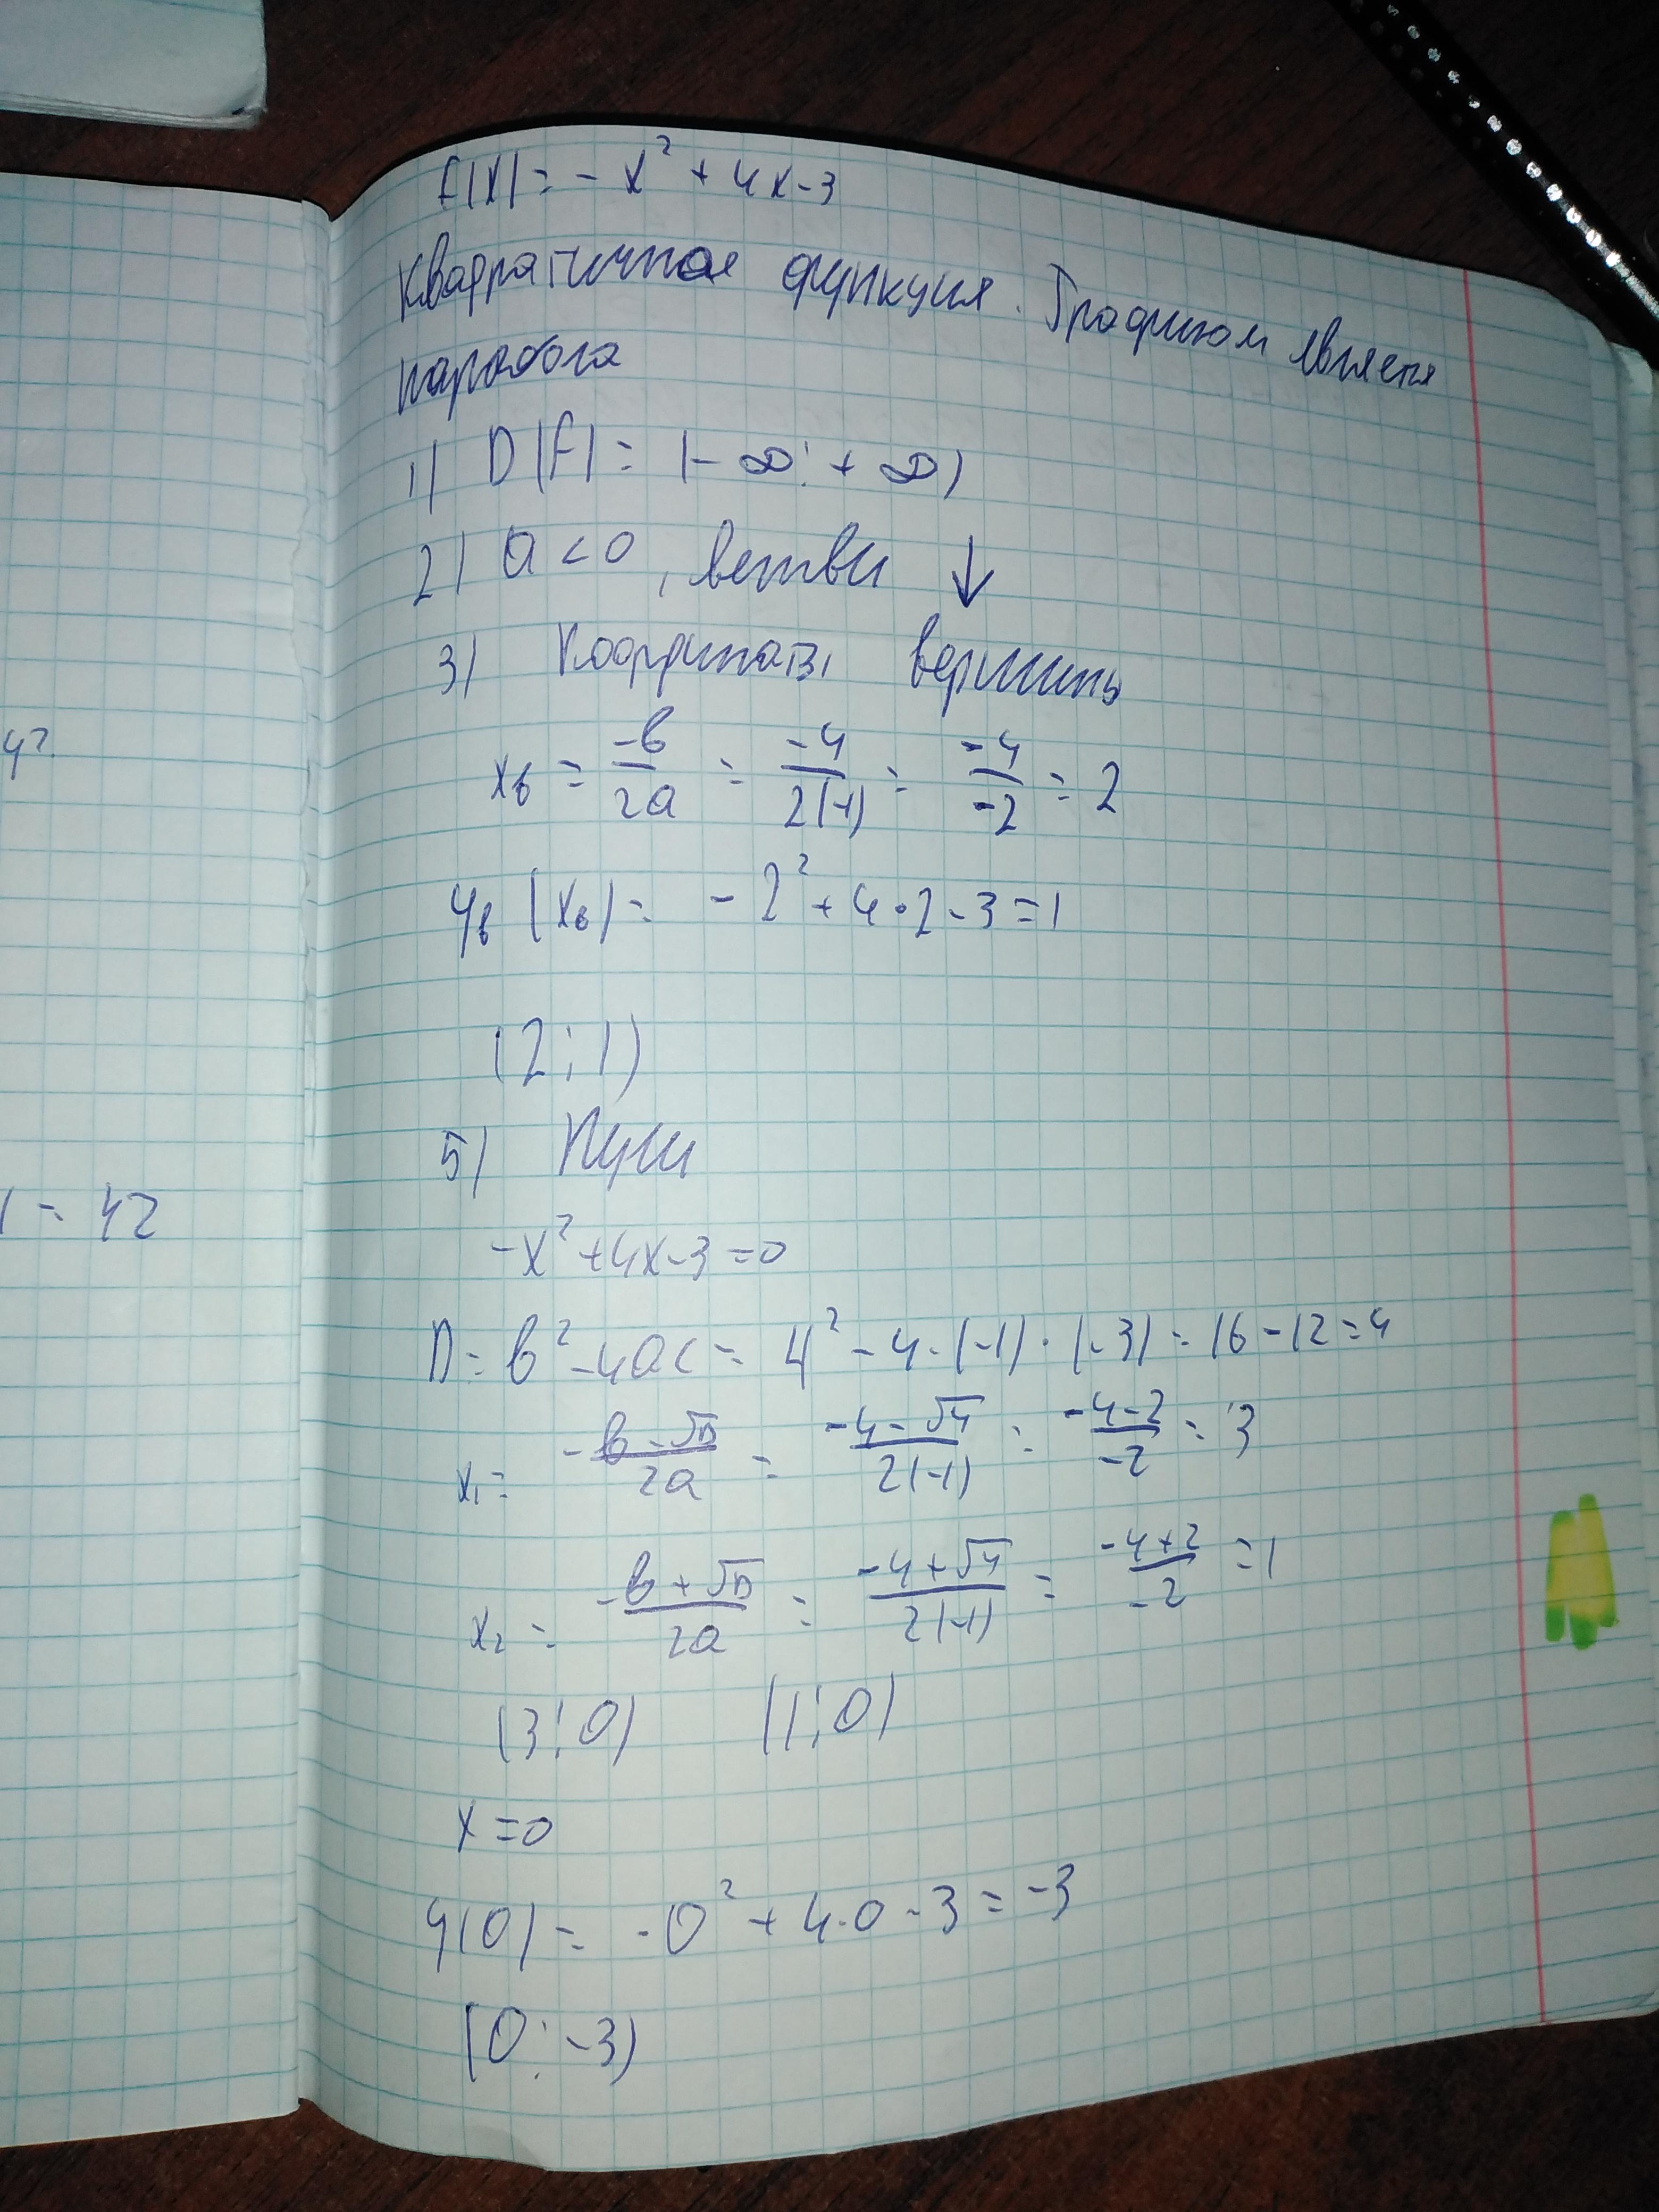 f(x) = -x² + 4x - 3
Квадратичная функция. Графиком является
парабола
1) D(f) = (-∞; +∞)
2) a < 0, ветви ↓
3) Координаты вершины
xв = -в/2a = -4/2(-1) = -4/-2 = 2
4?
yв (xв) = -2² + 4·2 - 3 = 1
(2; 1)
5) Нули
) = 42
-x² + 4x - 3 = 0
D = в² - 4ac = 4² - 4·(-1)·(-3) = 16 - 12 = 4
x₁ = -в - √D/2a = -4 - √4/2(-1) = -4-2/-2 = 3
x₂ = -в + √D/2a = -4 + √4/2(-1) = -4+2/-2 = 1
(3; 0) (1; 0)
x = 0
y(0) = -0² + 4·0 - 3 = -3
(0; -3)